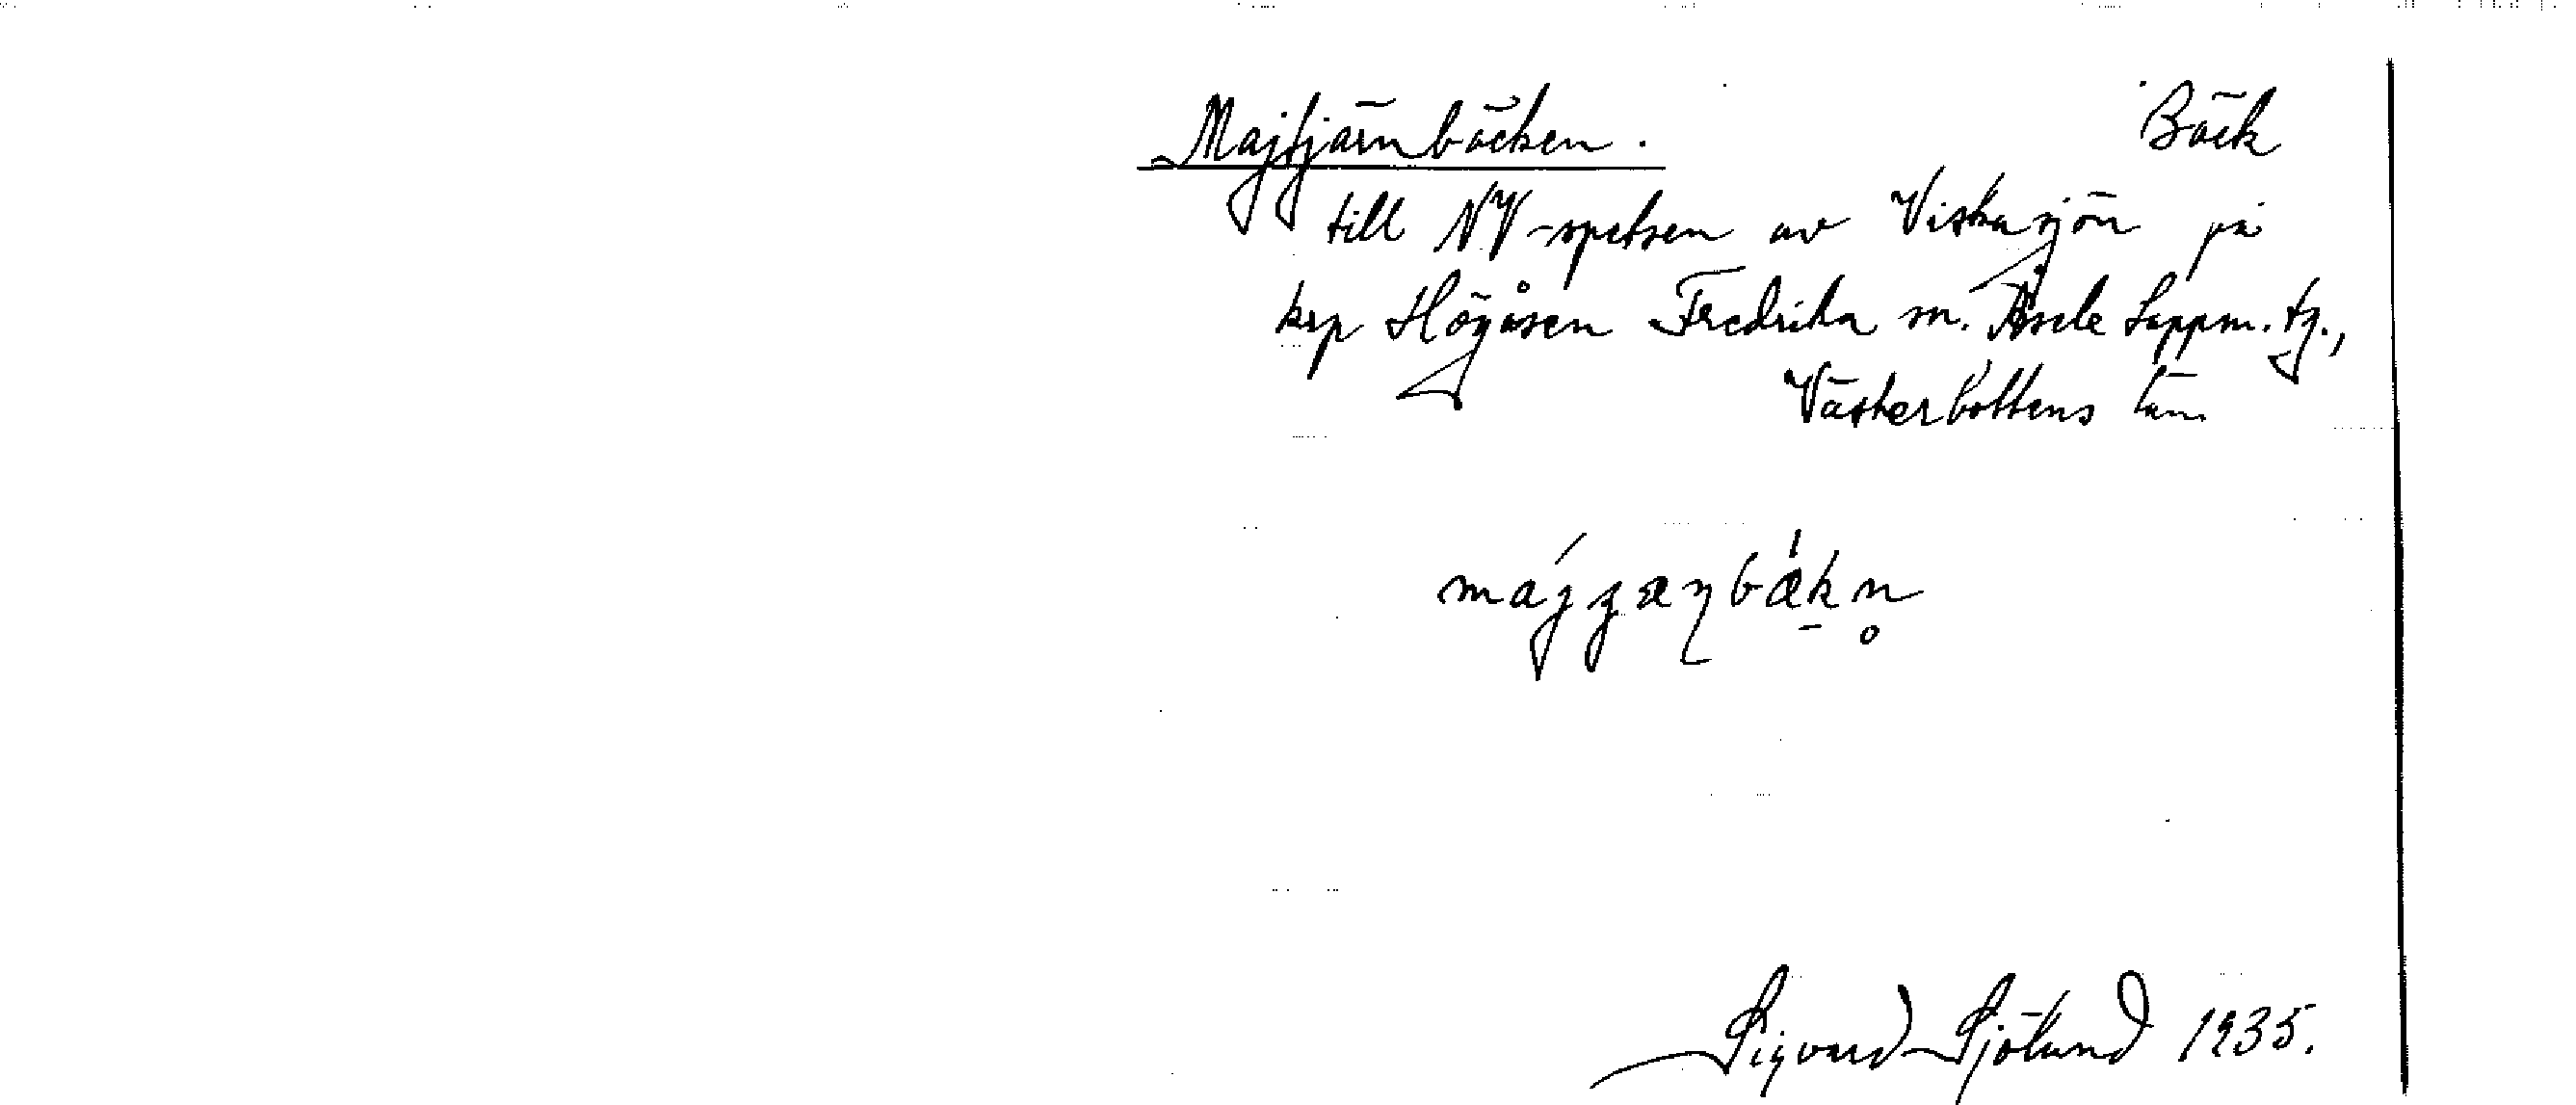 Majtjärnbäcken. Bäck
till NV-spetsen av Viskasjön på
krp Högåsen Fredrika sn. Åsele Lappm. tg.,
Västerbottens län
Sigvard Sjölund 1935.